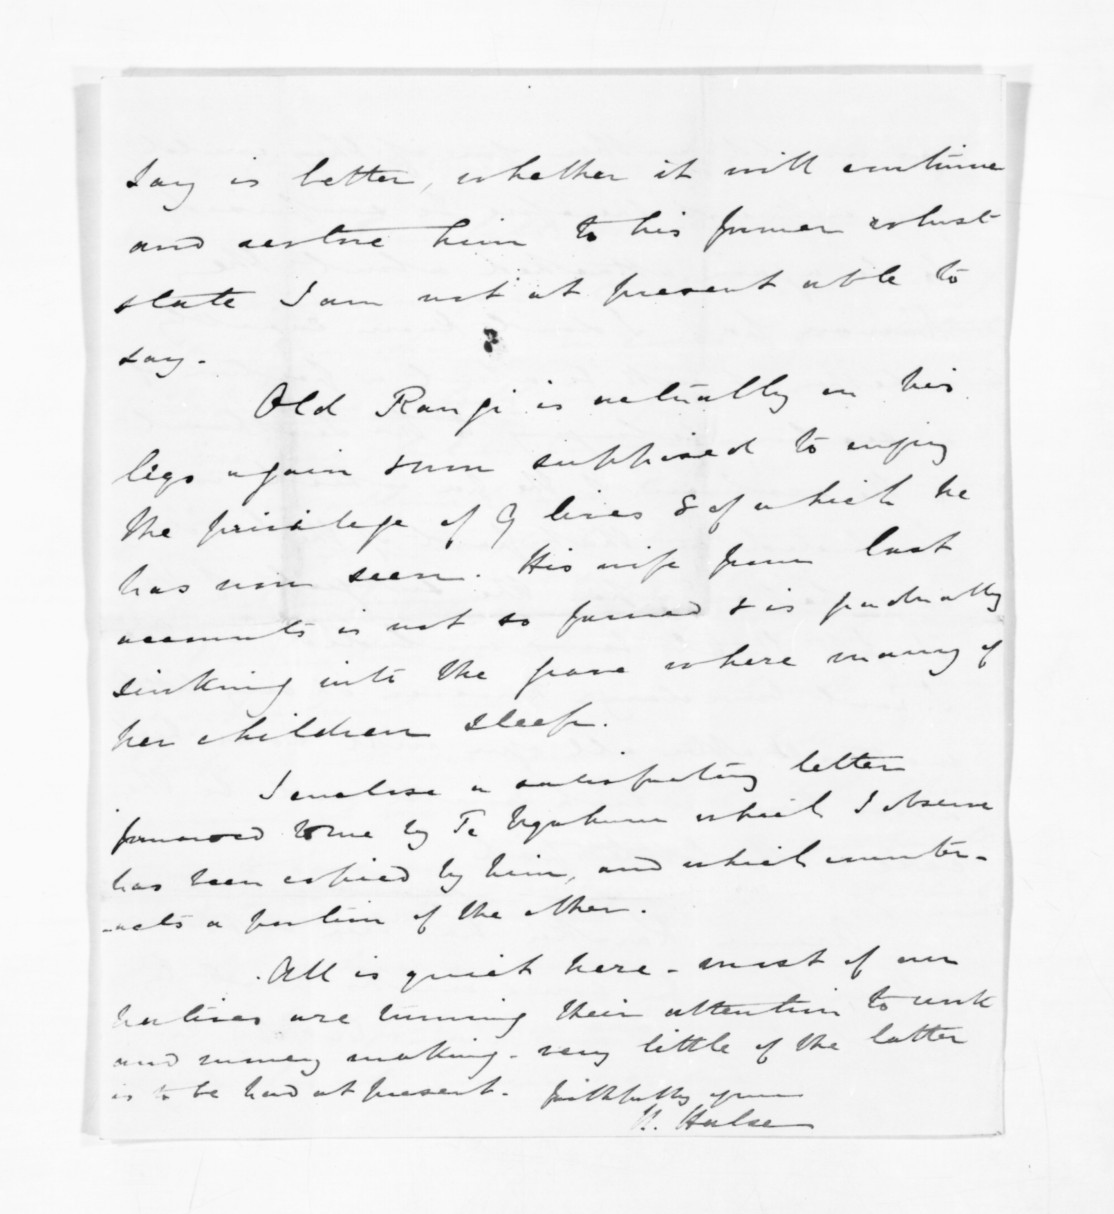 say is better, whether it will continue
and restore him to his former robust
state I am not at present able to
say -
Old Rangi is actually on his
legs again & am supposed to enjoy
the privilege of 9 lives & of which he
has now seen. His wife from last
accounts is not so favored & is gradually
sinking into the grave where many of
her children sleep.
I enclose a satisfactory letter
forwarded to me by Te Ngahuru which I observe
has been copied by him, and which counter-
-acts a portion of the other.
All is quiet here - most of our
natives are turning their attention to work
and money making - very little of the latter
is to be had at present. faithfully yours
H. Halse